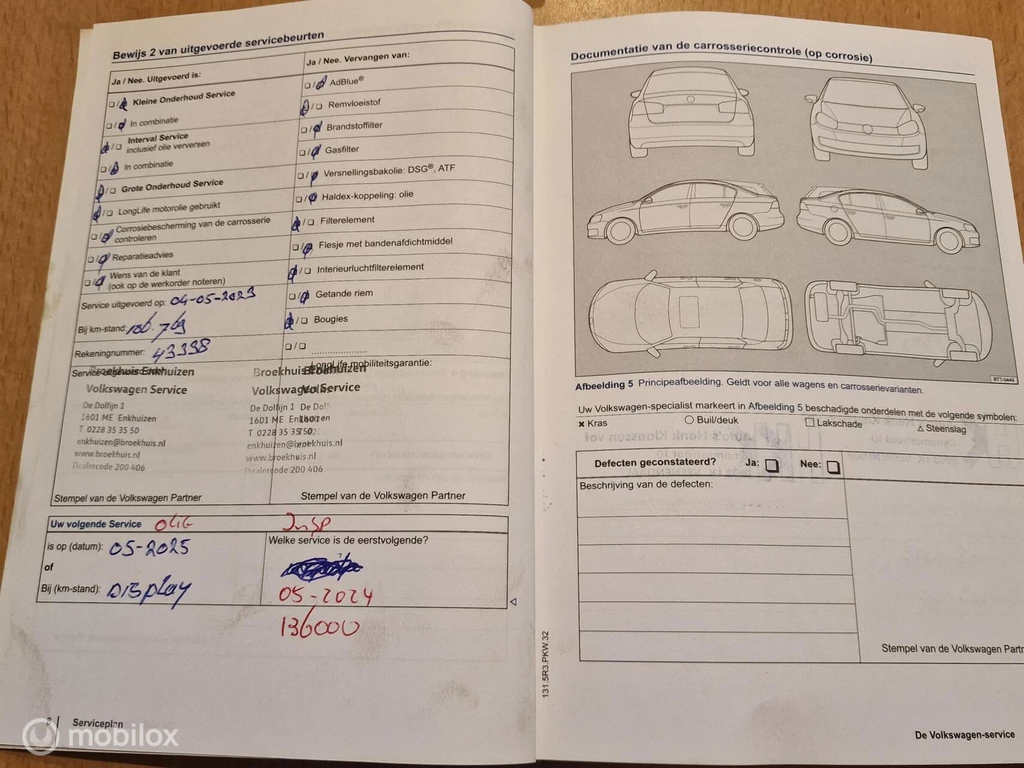 Bewijs 2 van uitgevoerde servicebeurten
Ja / Nee. Uitgevoerd is:
Kleine Onderhoud Service
In combinatie
Interval Service
inclusief olie verversen
In combinatie
Grote Onderhoud Service
LongLife motorolie gebruikt
Corrosiebescherming van de carrosserie
controleren
Reparatieadvies
Wens van de klant
(ook op de werkorder noteren)
Service uitgevoerd op: 04-05-2023
Bij km-stand: 106.769
Rekeningnummer: 43398
Ja / Nee. Vervangen van:
AdBlue®
Remvloeistof
Brandstoffilter
Gasfilter
Versnellingsbakolie: DSG®, ATF
Haldex-koppeling: olie
Filterelement
Flesje met bandenafdichtmiddel
Interieurluchtfilterelement
Getande riem
Bougies
LongLife mobiliteitsgarantie:
Broekhuis Enkhuizen
Volkswagen Service
De Dolfijn 1
1601 ME Enkhuizen
T 0228 35 35 50
enkhuizen@broekhuis.nl
www.broekhuis.nl
Dealercode 200 406
Stempel van de Volkswagen Partner
Broekhuis Enkhuizen
Volkswagen Service
De Dolfijn 1
1601 ME Enkhuizen
T 0228 35 35 50
enkhuizen@broekhuis.nl
www.broekhuis.nl
Dealercode 200 406
Stempel van de Volkswagen Partner
Uw volgende Service Olie Insp
is op (datum): 05-2025
of
Bij (km-stand): Display
Welke service is de eerstvolgende?
05-2024
136000
Serviceplan
mobilox
Documentatie van de carrosseriecontrole (op corrosie)
BTT-0449
Afbeelding 5 Principeafbeelding. Geldt voor alle wagens en carrosserievarianten.
Uw Volkswagen-specialist markeert in Afbeelding 5 beschadigde onderdelen met de volgende symbolen:
Kras Buil/deuk Lakschade Steenslag
Defecten geconstateerd? Ja: Nee:
Beschrijving van de defecten:
Stempel van de Volkswagen Partn
131.5R3.PKW.32
De Volkswagen-service